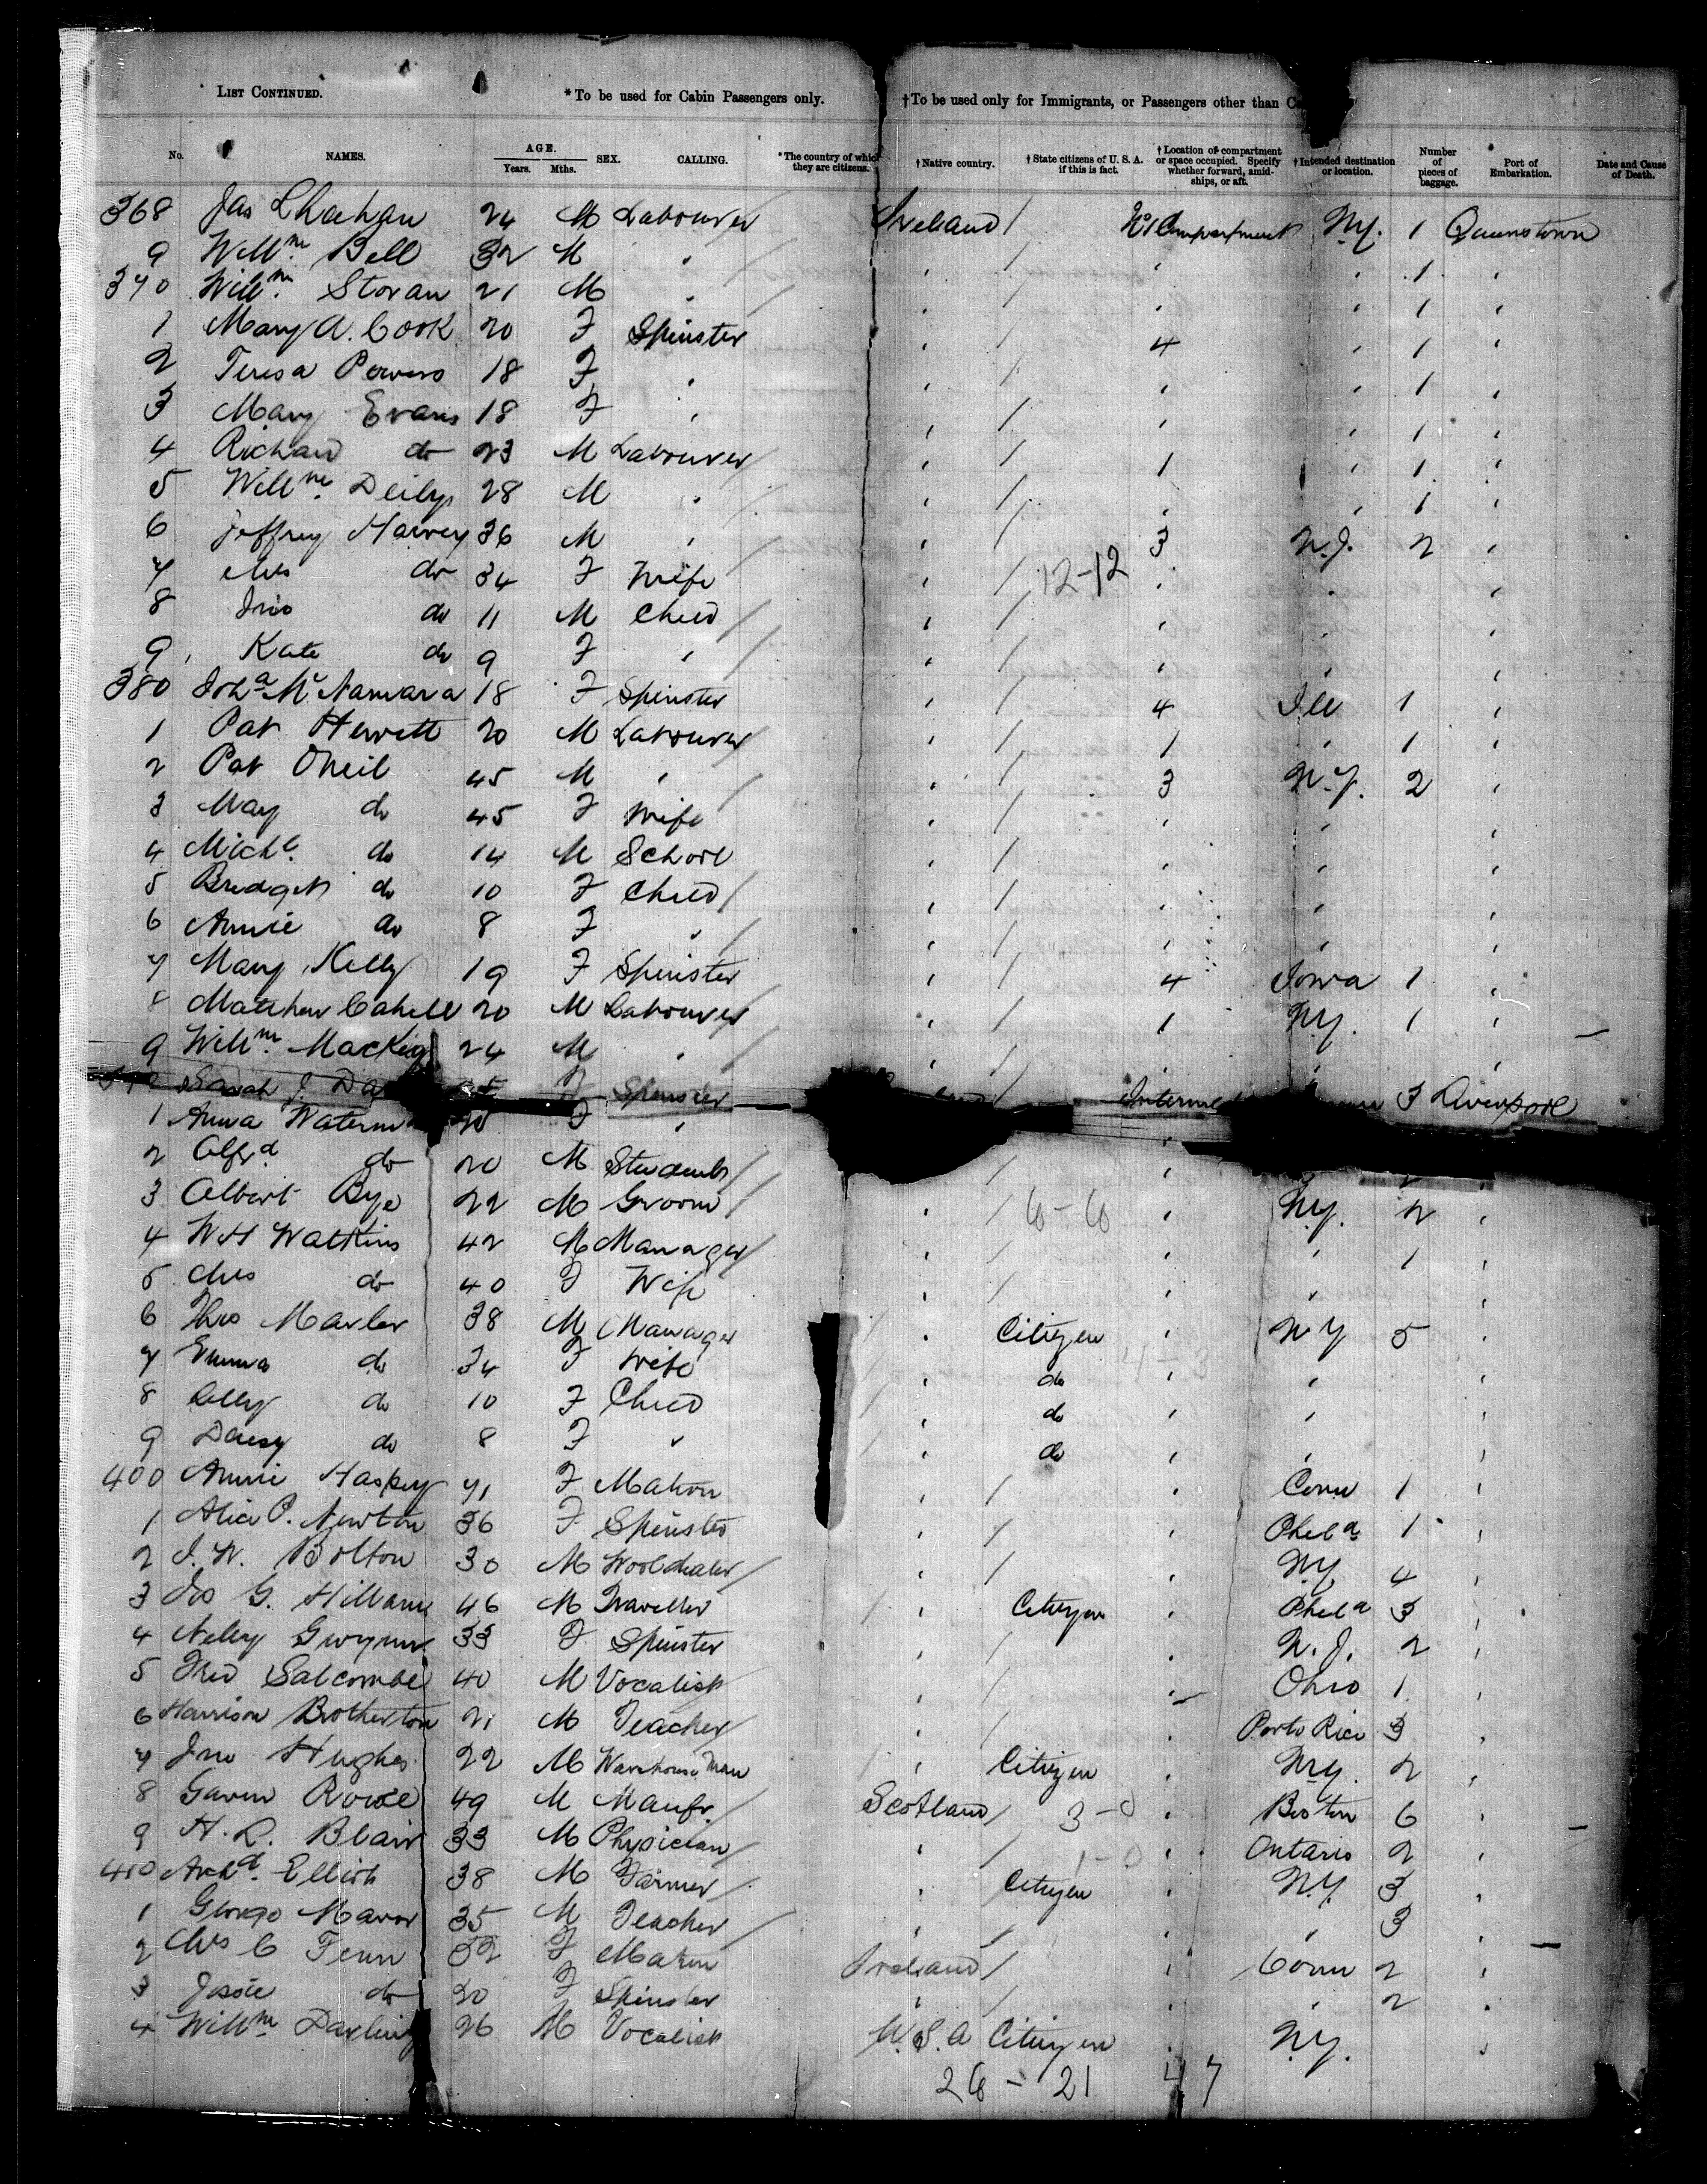 LIST CONTINUED. *To be used for Cabin Passengers only. †To be used only for Immigrants, or Passengers other than
No. NAMES. AGE. Years. Mths. SEX. CALLING. *The country of which they are citizens. †Native country. †State citizens of U. S. A. if this is fact. †Location of compartment or space occupied. Specify whether forward, amid-ships, or aft. †Intended destination or location. Number of pieces of baggage. Port of Embarkation. Date and Cause of Death.
368 Jas 24 M Labourer Ireland / No 1 Compartment N.Y. 1 Queenstown
9 Willm. Bell 32 M " / " " 1 "
370 Willm. Storan 21 M " " / " " 1 "
1 Mary A. Cook 20 F Spinster " / 4 " 1 "
2 Teresa Powers 18 F " " / " " 1 "
3 Mary Evans 18 F " " / " " 1 "
4 Richard do 23 M Labourer " / 1 " 1 "
5 Willm. 28 M " " / " " 1 "
6 Jeffrey Harvey 36 M " " / 3 N.J. 2 "
7 Mrs do 34 F Wife " / 12-12 " " "
8 Jno do 11 M Child " / " " "
9 Kate do 9 F " " / " " "
380 Joha McNamara 18 F Spinster " / 4 Ill 1 "
1 Pat Hewett 20 M Labourer " / 1 " 1 "
2 Pat ONeil 45 M " " / 3 N.Y. 2 "
3 May do 45 F Wife " / " " "
4 Michl. do 14 M School " / " " "
5 Bridget do 10 F Child " / " " "
6 Annie do 8 F " " / " " "
7 Mary Kelly 19 F Spinster " / 4 Iowa 1 "
8 Matthew Cahill 20 M Labourer " / 1 N.Y. 1 "
9 Willm. 24 M " " / " "
Sarah J. F Spinster 3 Liverpool
1 Anna 20 F "
2 Alfd do 20 M Student / " 2 "
3 Albert Bye 22 M Groom " / 6-6 " N.Y. 2 "
4 W H Watkins 42 M Manager " / " " 1 "
5 Mrs do 40 F Wife " / " " "
6 Thos Marler 38 M Manager " Citizen " N Y 5 "
7 Emma do 34 F Wife " do " " "
8 Lilly do 10 F Child " do " " "
9 Daisy do 8 F " " do " " "
400 Annie 71 F Matron " / " Conn 1 "
1 Alice P. Newton 36 F Spinster " / " Phila 1 "
2 J. W. Bolton 30 M Wooldealer " / " N.Y. 4 "
3 Jos G. 46 M Traveller " Citizen " Phila 3 "
4 Nelly 33 F Spinster " / " N.J. 2 "
5 Fred Salcombe 40 M Vocalist " / " Ohio 1 "
6 Harrison Brotherton 21 M Teacher " / " Porto Rico 3 "
7 Jno Hughes 22 M Warehouse Man " Citizen " N.Y. 2 "
8 Gavin 49 M Manfr. Scotland / 3-0 " Boston 6 "
9 H. R. Blair 33 M Physician " / 1-0 " Ontario 2 "
410 Archd. Elliott 38 M Farmer " Citizen " N.Y. 3 "
1 George Mavor 35 M Teacher " / " " 3 "
2 Mrs C Fenn 52 F Matron Ireland / " Conn 2 "
3 Josie do 20 F Spinster " / " " 2 "
4 Willm. Darling 26 M Vocalist U.S.A Citizen " N.Y. "
26 - 21 47